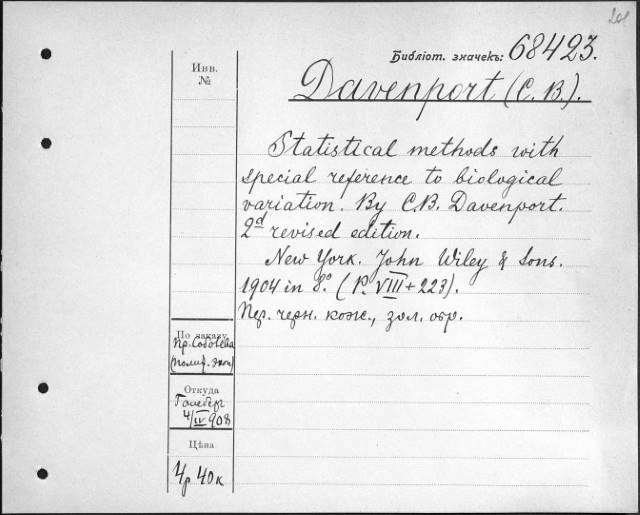 201
Библіот. значекъ: 68423.
Davenport (C. B.).
Инв.
№
Statistical methods with
special reference to biological
variation. By C.B. Davenport.
2d revised edition.
New York. John Wiley & Sons.
1904 in 8.° (P. VIII + 223).
Пер. черн. кож., зол. обр.
По заказу
Пр.
Откуда
4/IV 908
Цѣна
4р 40к